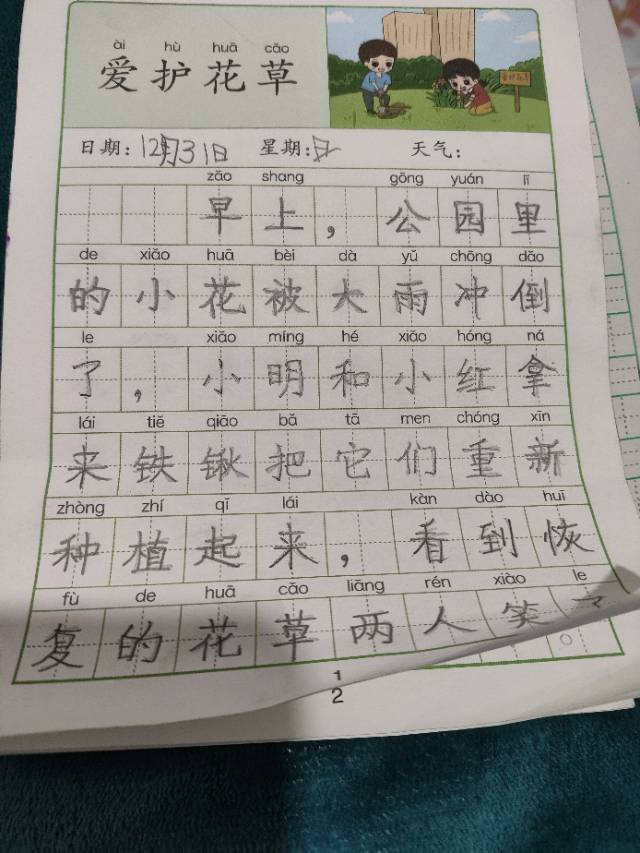 ài hù huā cǎo
爱护花草
日期：12月31日 星期：日 天气：
zǎo shang gōng yuán lǐ
早上，公园里
de xiǎo huā bèi dà yǔ chōng dǎo
的小花被大雨冲倒
le xiǎo míng hé xiǎo hóng ná
了，小明和小红拿
lái tiě qiāo bǎ tā men chóng xīn
来铁锹把它们重新
zhòng zhí qǐ lái kàn dào huī
种植起来，看到恢
fù de huā cǎo liǎng rén xiào le
复的花草两人笑了。
1
2